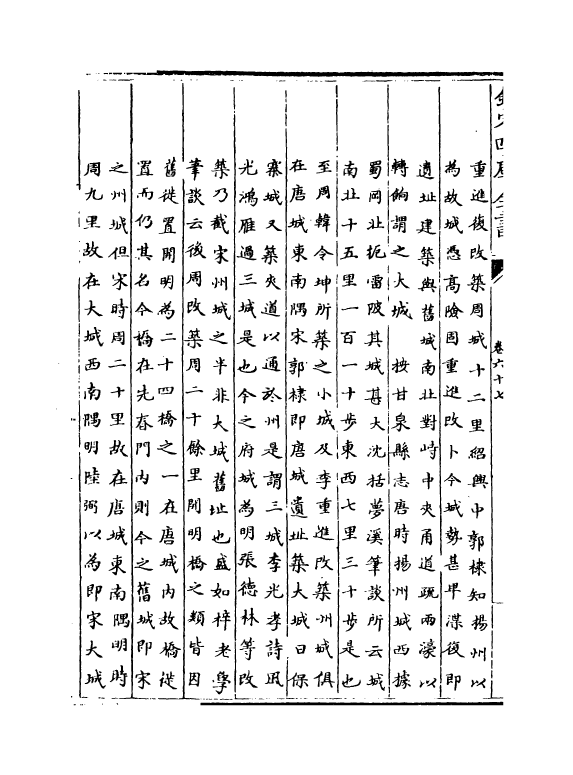 重進復改築周城十二里紹興中郭棣知揚州以
為故城憑高險固重進改卜今城勢甚卑渫復即
遺址建築與舊城南北對峙中夾甬道疏兩濠以
轉餉謂之大城　按甘泉縣志唐時揚州城西據
蜀岡北抱雷陂其城甚大沈括夢溪筆談所云城
南北十五里一百一十步東西七里三十步是也
至周韓令坤所築之小城及李重進改築州城俱
在唐城東南隅宋郭棣即唐城遺址築大城曰保
寨城又築夾道以通於州是謂三城李光孝詩風
光鴻雁過三城是也今之府城為明張德林等改
築乃截宋州城之半非大城舊址也盛如梓老學
筆談云後周改築周二十餘里開明橋之類皆因
舊徙置開明為二十四橋之一在唐城內故橋從
置而仍其名今橋在先春門內則今之舊城即宋
之州城但宋時周二十里故在唐城東南隅明時
周九里故在大城西南隅明陸弼以為即宋大城
卷六十七